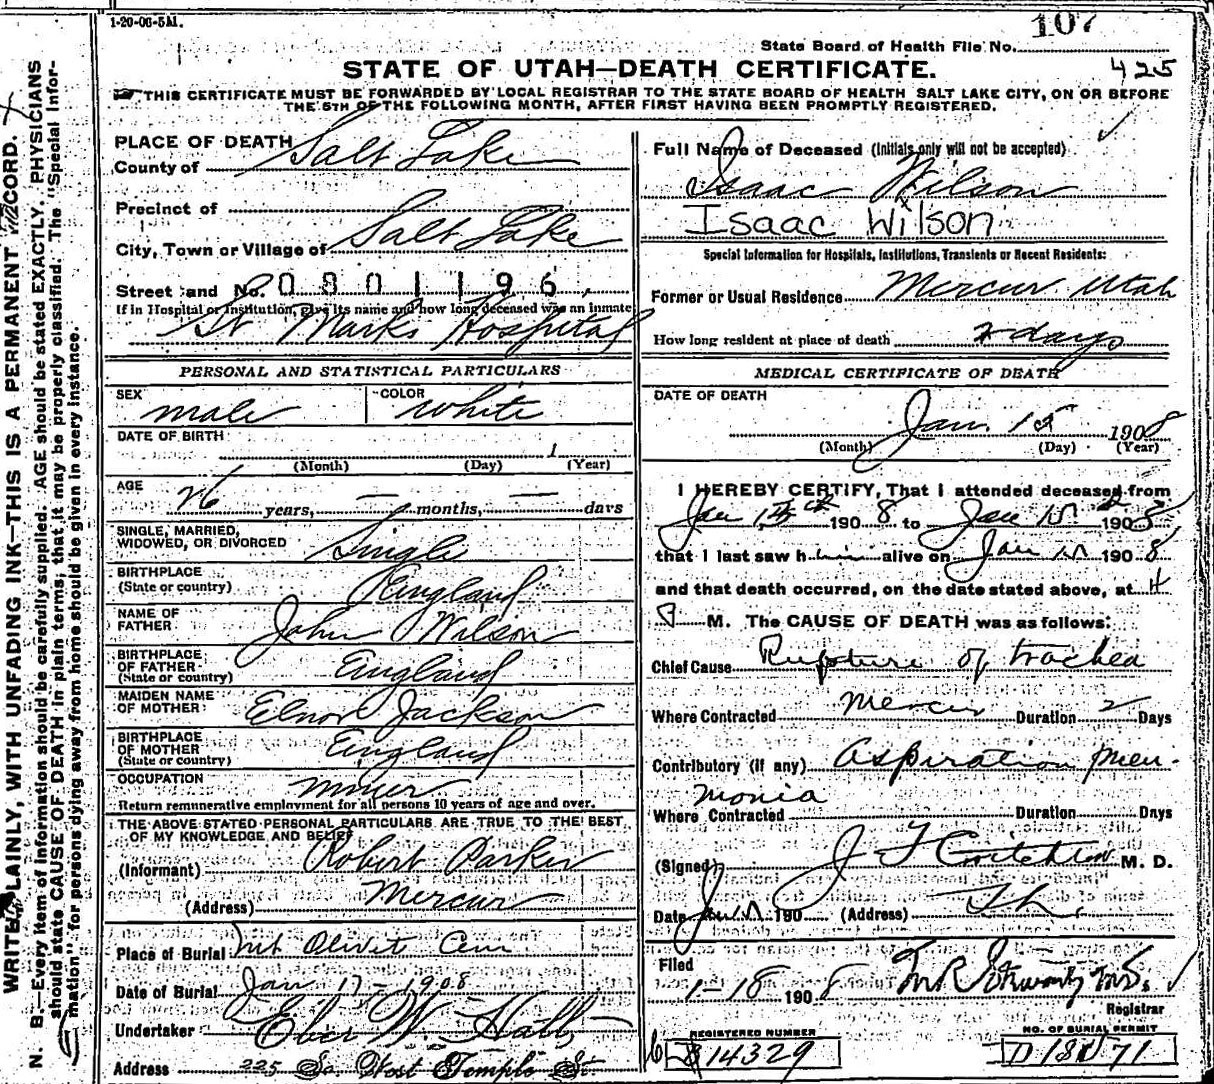 1-20-06-5M.
107
State Board of Health File No.
425
STATE OF UTAH—DEATH CERTIFICATE.
THIS CERTIFICATE MUST BE FORWARDED BY LOCAL REGISTRAR TO THE STATE BOARD OF HEALTH SALT LAKE CITY, ON OR BEFORE
THE 5TH OF THE FOLLOWING MONTH, AFTER FIRST HAVING BEEN PROMPTLY REGISTERED.
WRITE PLAINLY, WITH UNFADING INK—THIS IS A PERMANENT RECORD.
N. B.—Every item of information should be carefully supplied. AGE should be stated EXACTLY. PHYSICIANS
should state CAUSE OF DEATH in plain terms, that it may be properly classified. The "Special Infor-
mation" for persons dying away from home should be given in every instance.
PLACE OF DEATH
County of Salt Lake
Precinct of
City, Town or Village of Salt Lake
Street and No. 0801196
If in Hospital or Institution, give its name and how long deceased was an inmate
St Marks Hospital
PERSONAL AND STATISTICAL PARTICULARS
SEX male COLOR white
DATE OF BIRTH 1
(Month) (Day) (Year)
AGE 26 years, — months, — days
SINGLE, MARRIED,
WIDOWED, OR DIVORCED Single
BIRTHPLACE
(State or country) England
NAME OF
FATHER John Wilson
BIRTHPLACE
OF FATHER
(State or country) England
MAIDEN NAME
OF MOTHER Elnor Jackson
BIRTHPLACE
OF MOTHER
(State or country) England
OCCUPATION Miner
Return remunerative employment for all persons 10 years of age and over.
THE ABOVE STATED PERSONAL PARTICULARS ARE TRUE TO THE BEST
OF MY KNOWLEDGE AND BELIEF
(Informant) Robert Parker
(Address) Mercur
Place of Burial Mt Olivet Cem
Date of Burial Jan 17-1908
Undertaker Eber W. Hall
Address 225 So. West Temple St.
Full Name of Deceased (Initials only will not be accepted)
Isaac Wilson
Isaac Wilson
Special Information for Hospitals, Institutions, Transients or Recent Residents:
Former or Usual Residence Mercur Utah
How long resident at place of death 2 days
MEDICAL CERTIFICATE OF DEATH
DATE OF DEATH
Jan. 15 1908
(Month) (Day) (Year)
I HEREBY CERTIFY, That I attended deceased from
Jan 190 8 to Jan 15 190 8,
that I last saw him alive on Jan 15 190 8,
and that death occurred, on the date stated above, at 4
P M. The CAUSE OF DEATH was as follows:
Chief Cause Rupture of trachea
Where Contracted Mercur Duration 2 Days
Contributory (if any) Aspiration pneu-
monia
Where Contracted Duration Days
(Signed) J F Critchlow M. D.
Date Jan 15 190 (Address)
Filed
1-18 1908
Registrar
REGISTERED NUMBER
14329
NO. OF BURIAL PERMIT